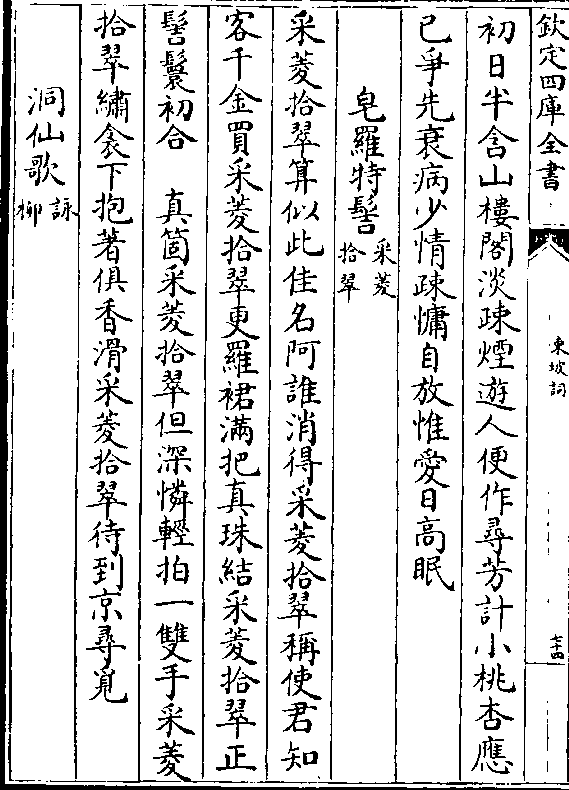 欽定四庫全書
東坡詞
七十四
初日半含山樓閣淡疎煙遊人便作尋芳計小桃杏應
已爭先衰病少情疎慵自放惟愛日高眠
皂羅特髻 采菱拾翠
采菱拾翠算似此佳名阿誰消得采菱拾翠稱使君知
客千金買采菱拾翠更羅裙滿把真珠結采菱拾翠正
髻鬟初合　真箇采菱拾翠但深憐輕拍一雙手采菱
拾翠繡衾下抱著俱香滑采菱拾翠待到京尋覓
洞仙歌 詠柳